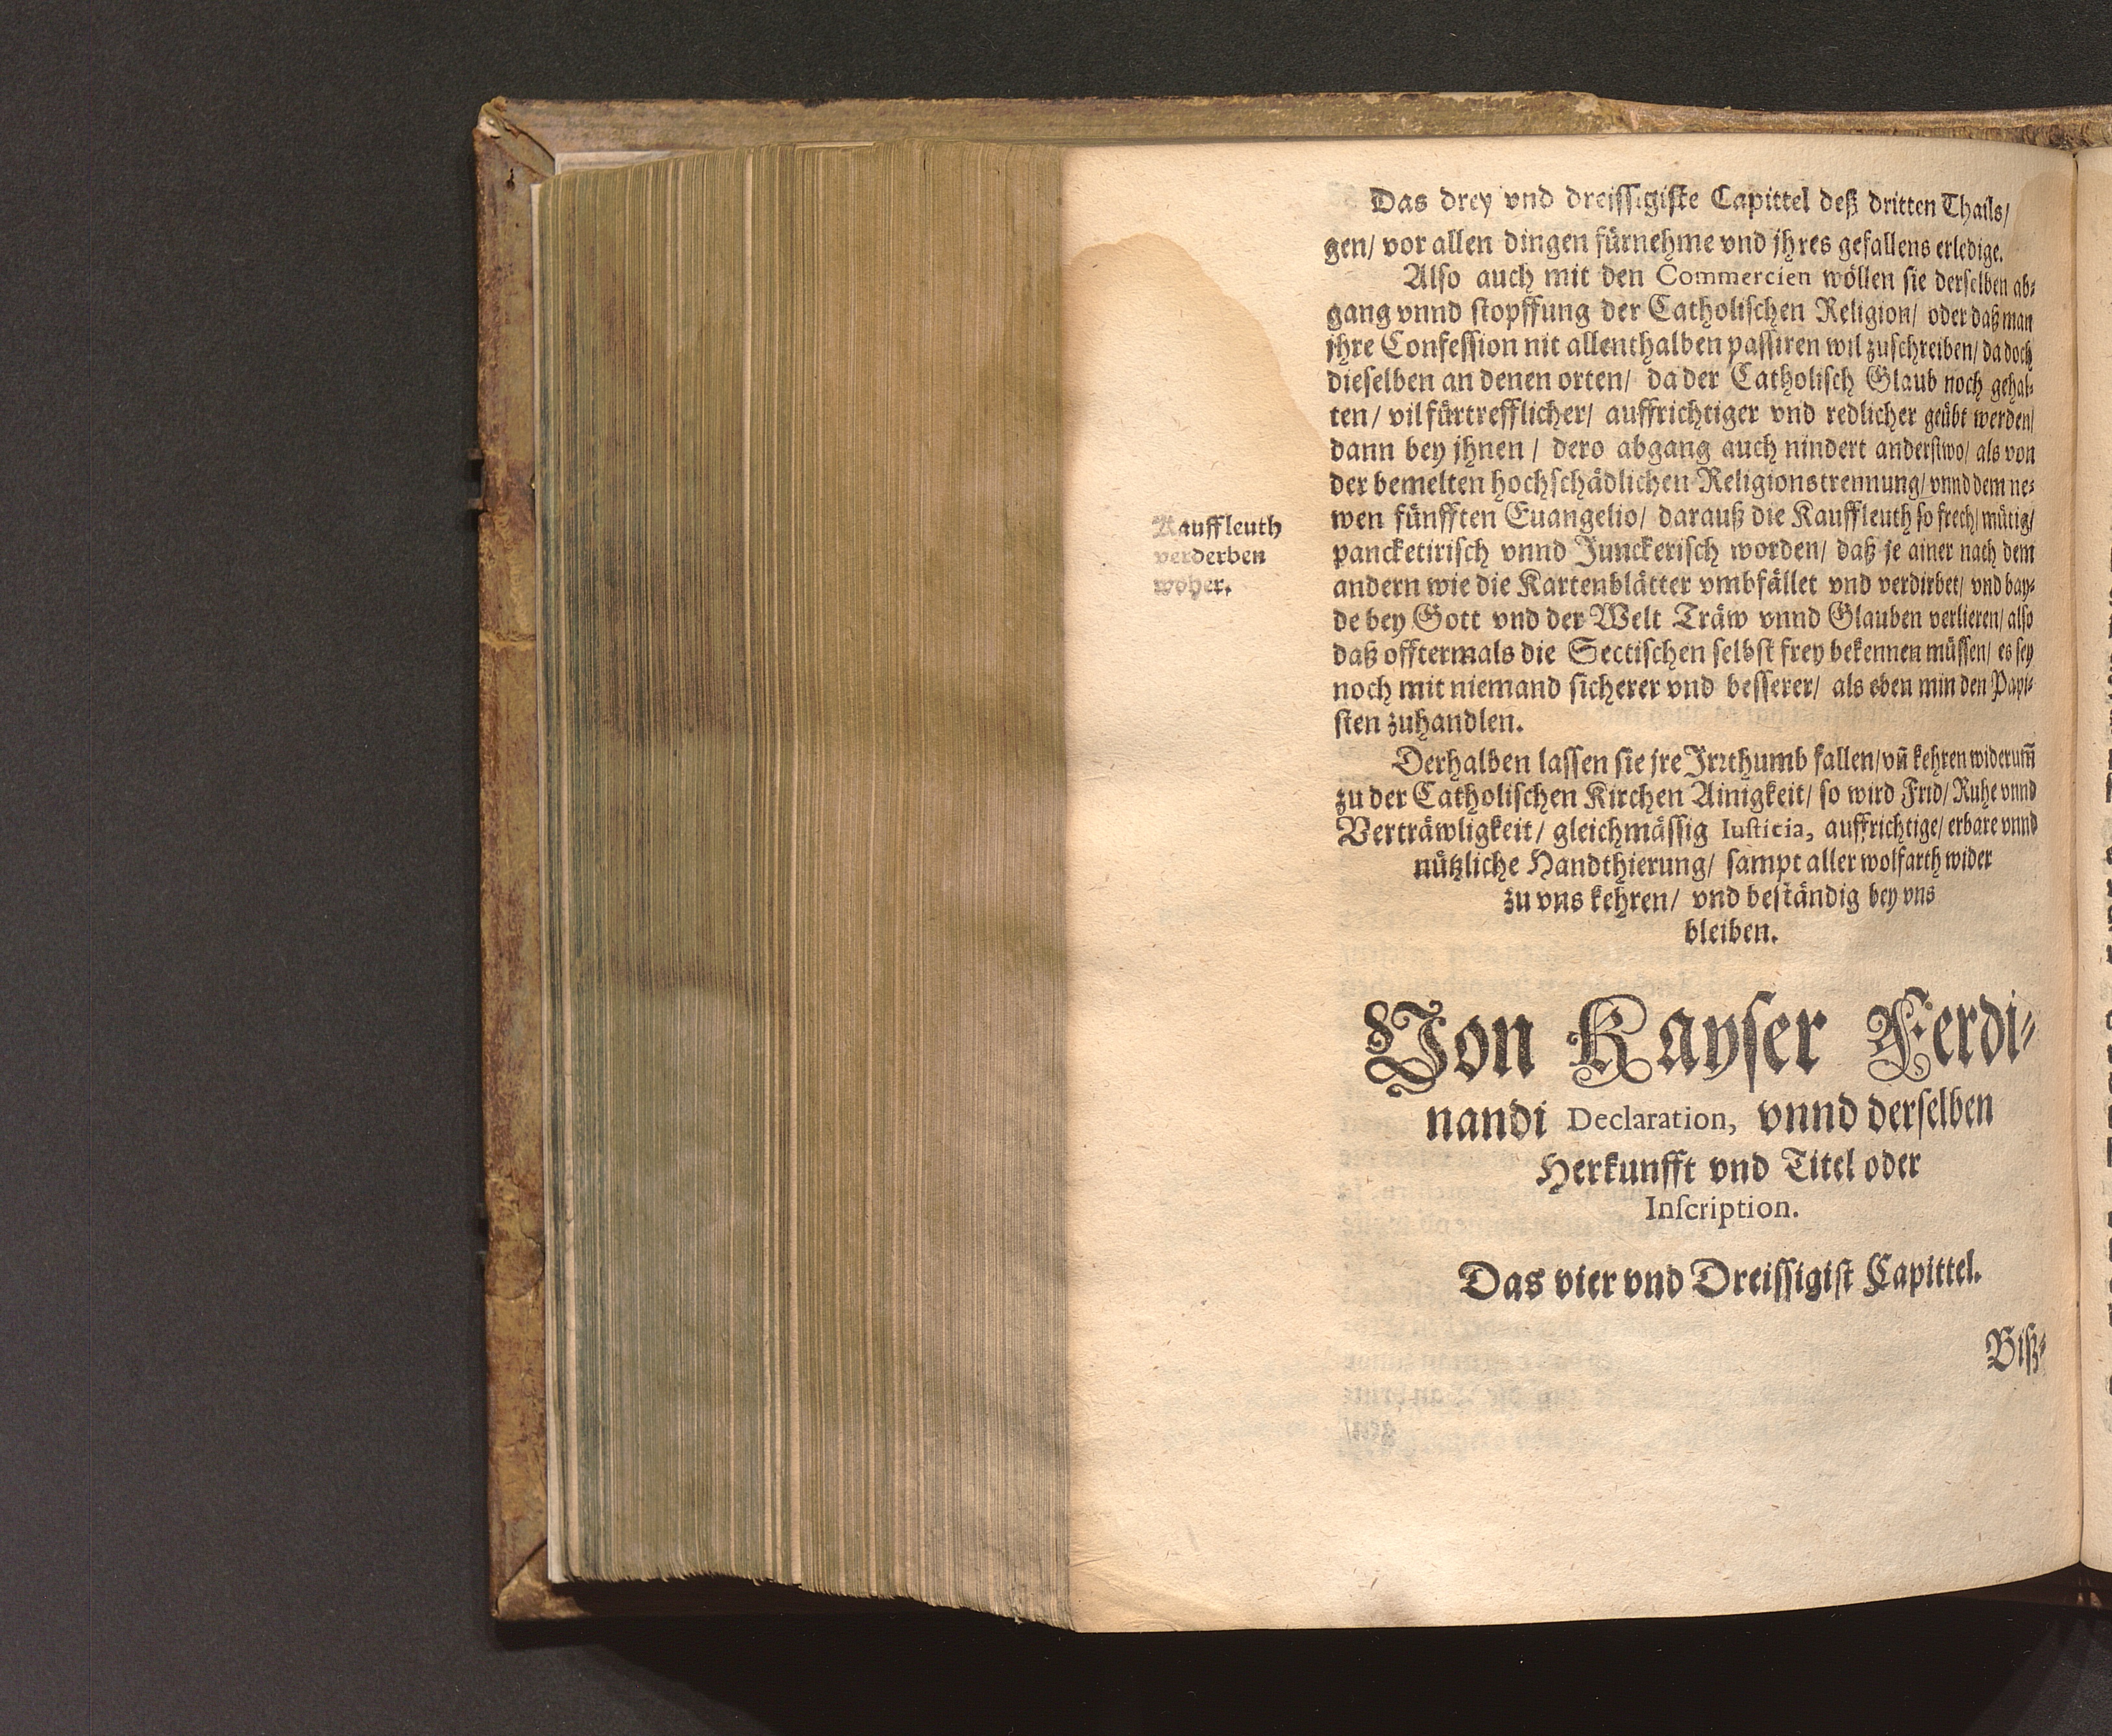 Das drey vnd dreissigiste Capittel deß dritten Thails/
gen/ vor allen dingen fürnehme vnd jhres gefallens erledige.
Also auch mit den Commercien wöllen sie derselben ab-
gang vnnd stopffung der Catholischen Religion/ oder daß man
jhre Confession nit allenthalben passiren wil zuschreiben/ da doch
dieselben an denen orten/ da der Catholisch Glaub noch gehal-
ten/ vil fürtrefflicher/ auffrichtiger vnd redlicher geübt werden/
dann bey jhnen / dero abgang auch nindert anderstwo/ als von
der bemelten hochschädlichen Religionstrennung/ vnnd dem ne-
wen fünfften Euangelio/ darauß die Kauffleuth so frech/ mütig/
pancketirisch vnnd Junckerisch worden/ daß je ainer nach dem
andern wie die Kartenblätter vmbfället vnd verdirbet/ vnd bay-
de bey Gott vnd der Welt Träw vnnd Glauben verlieren/ also
daß offtermals die Sectischen selbst frey bekennen müssen/ es sey
noch mit niemand sicherer vnd besserer/ als eben min den Papi-
sten zuhandlen.
Kauffleuth
verderben
woher.
Derhalben lassen sie jre Irrthumb fallen/ vñ kehren widerum̃
zu der Catholischen Kirchen Ainigkeit/ so wird Frid/ Ruhe vnnd
Verträwligkeit/ gleichmässig Iusticia, auffrichtige/ erbare vnnd
nützliche Handthierung/ sampt aller wolfarth wider
zu vns kehren/ vnd beständig bey vns
bleiben.
Von Kayser Ferdi-
nandi Declaration, vnnd derselben
Herkunfft vnd Titel oder
Inscription.
Das vier vnd Dreissigist Capittel.
Biß-